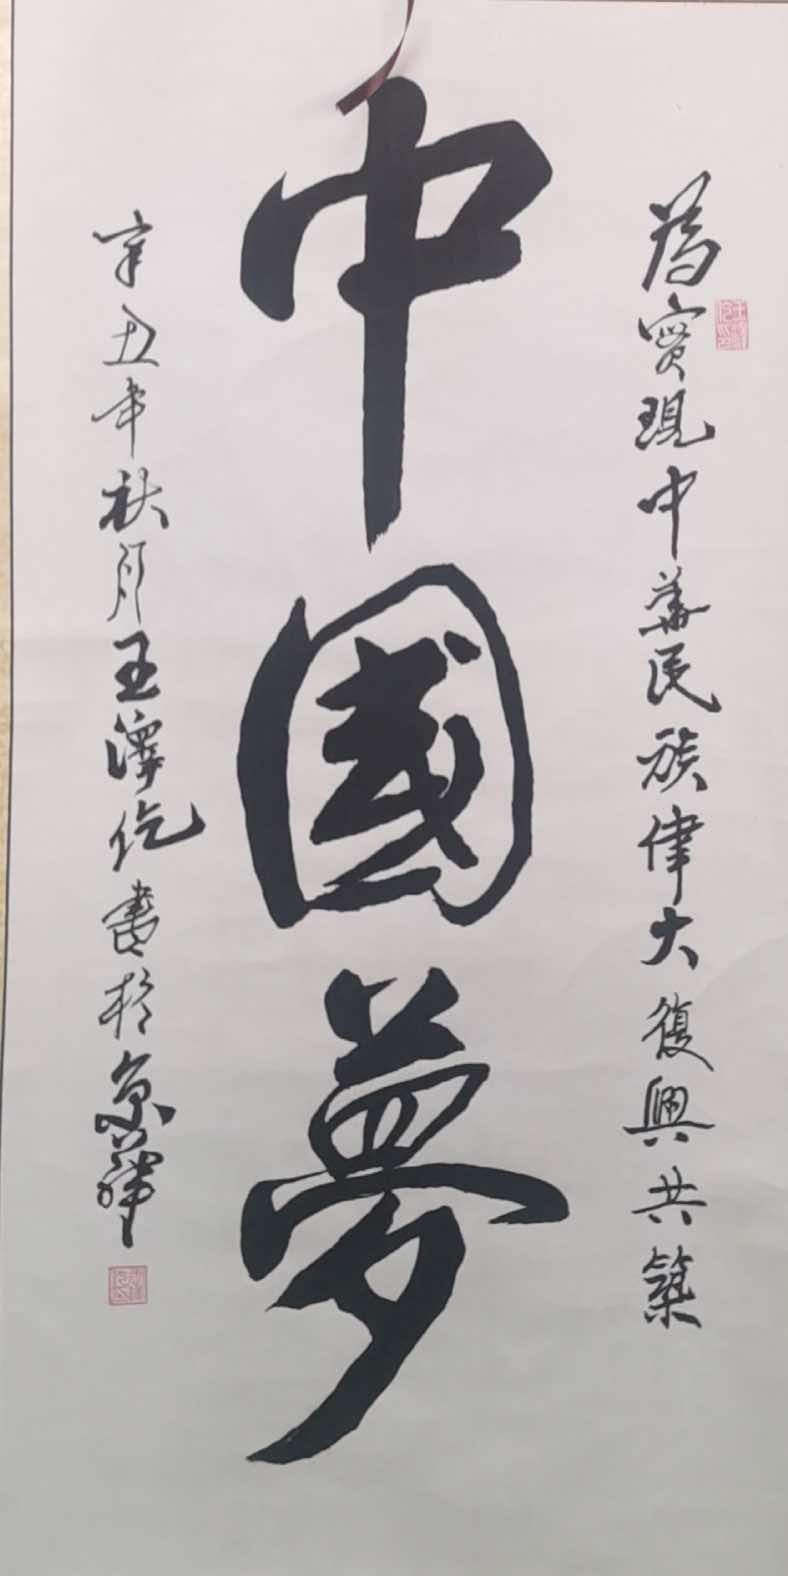 為實現中華民族偉大復興共築
中國夢
辛丑年秋月王澤仡書於京華